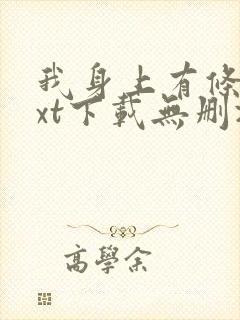 我身上有條
xt下載無刪
高學余